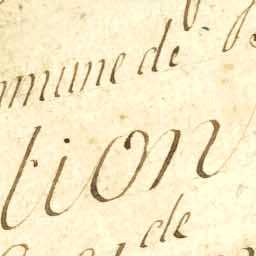 mmune de
tion
de